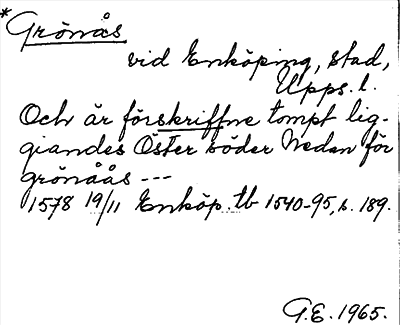 *Grönås
vid Enköping, stad,
Upps. l.
Och är förskriffne tompt lig-
giandes Öster söder Nedan för
grönåås ---
1578 19/11 Enköp. tb 1540-95, s. 189.
G.E. 1965.